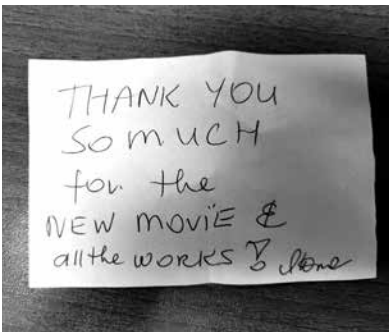 THANK YOU
SO MUCH
for the
NEW MOVIE &
all the WORKS!